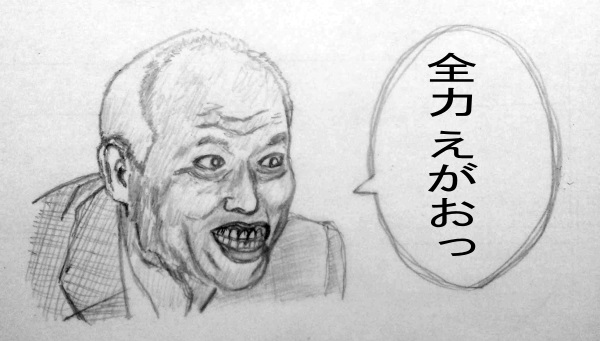 全力 えがおっ